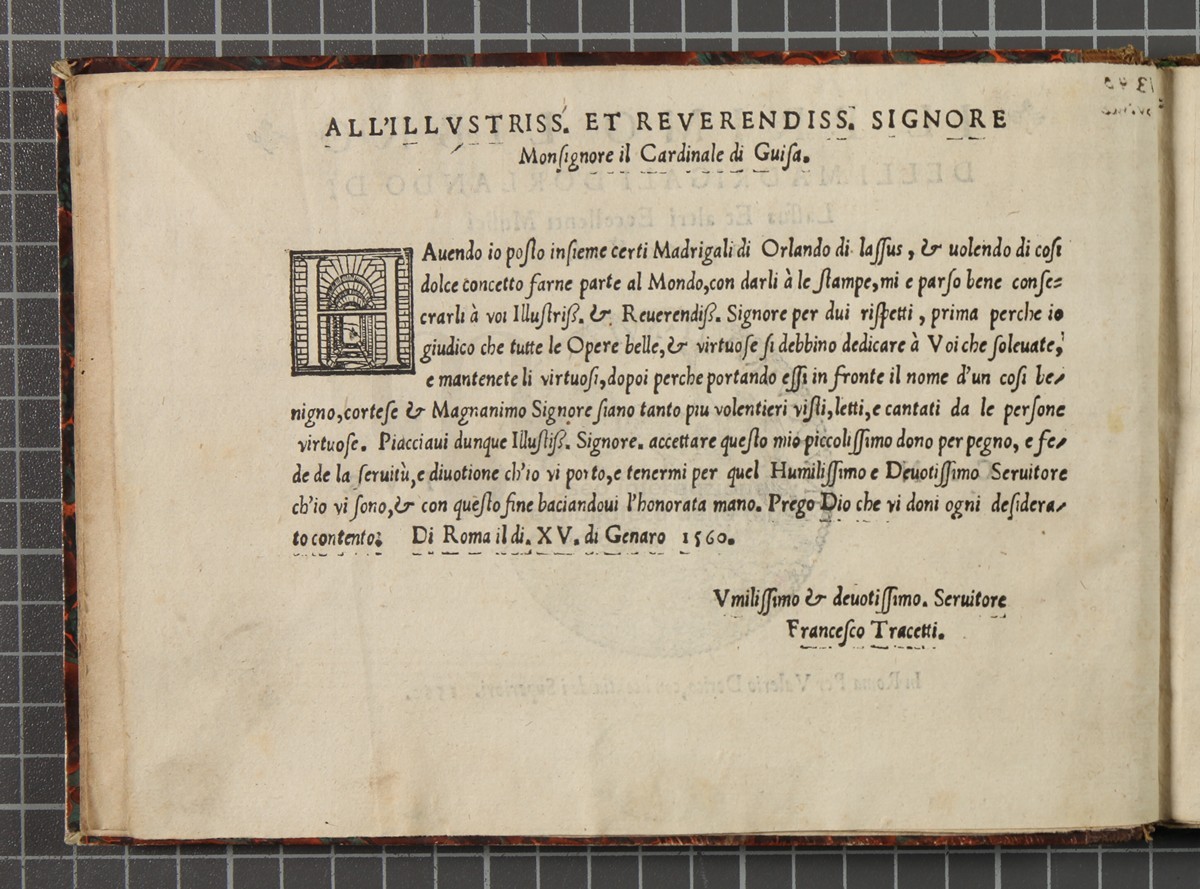 ALL'ILLVSTRISS. ET REVERENDISS. SIGNORE
Monſignore il Cardinale di Guiſa.
HAuendo io poſto inſieme certi Madrigali di Orlando di laſſus, & uolendo di coſi
dolce concetto farne parte al Mondo, con darli à le ſtampe, mi e parſo bene conſe=
crarli à voi Illuſtriß. &. Reuerendiß. Signore per dui riſpetti, prima perche io
giudico che tutte le Opere belle, & virtuoſe ſi debbino dedicare à Voi che ſoleuate,
e mantenete li virtuoſi, dopoi perche portando eſſi in fronte il nome d'un coſi be-
nigno, corteſe & Magnanimo Signore ſiano tanto piu volentieri viſti, letti, e cantati da le perſone
virtuoſe. Piacciaui dunque Illuſtiß. Signore. accettare queſto mio piccoliſſimo dono per pegno, e fe-
de de la ſeruitù, e diuotione ch'io vi porto, e tenermi per quel Humiliſſimo e Deuotiſſimo Seruitore
ch'io vi ſono, & con queſto fine baciandoui l'honorata mano. Prego Dio che vi doni ogni deſidera-
to contento; Di Roma il di. XV. di Genaro 1560.
Vmiliſſimo & deuotiſſimo. Seruitore
Franceſco Tracetti.